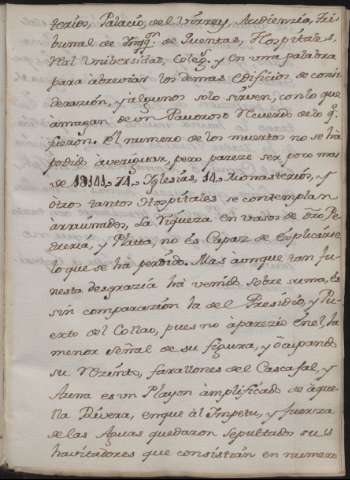 terios, Palacio, del Virrey, Audiencia, Tri
bunal de Ynqq.on de Quentas, Hospitales,
Rl Universidad, Coleg.s y en una palabra
para abreviar los demas edificios de consi
deracion, y algunos solo sirven, con lo que
amagan de un Pavoroso Recuerdo de lo q.e
fueron. El numero de los muertos no se há
podido averiguar, pero pareze ser poco mas
de 74 Yglesias, 14 Monasterios, y
otros tantos Hospitales se contemplan
arruinados, La riqueza en varos de
Pedreria, y Platta, no és Capaz de éxplicarse
lo que se ha perdido. Mas aunque tan fu
nesta desgrazia há venido sobre suma, És
sin comparazion la del Presidio, y Pu
erto del Collao, pues no áparezio én el, la
menor Señal de su figura, y óccupando
su Rezinto, farallones del Cascajal, y
Arena es un Playon ámplificado de áque
lla Rivera, en que al Ympetu, y fuerza
de las Aguas quedaron sepultados sus
havitadores que consistian en numero